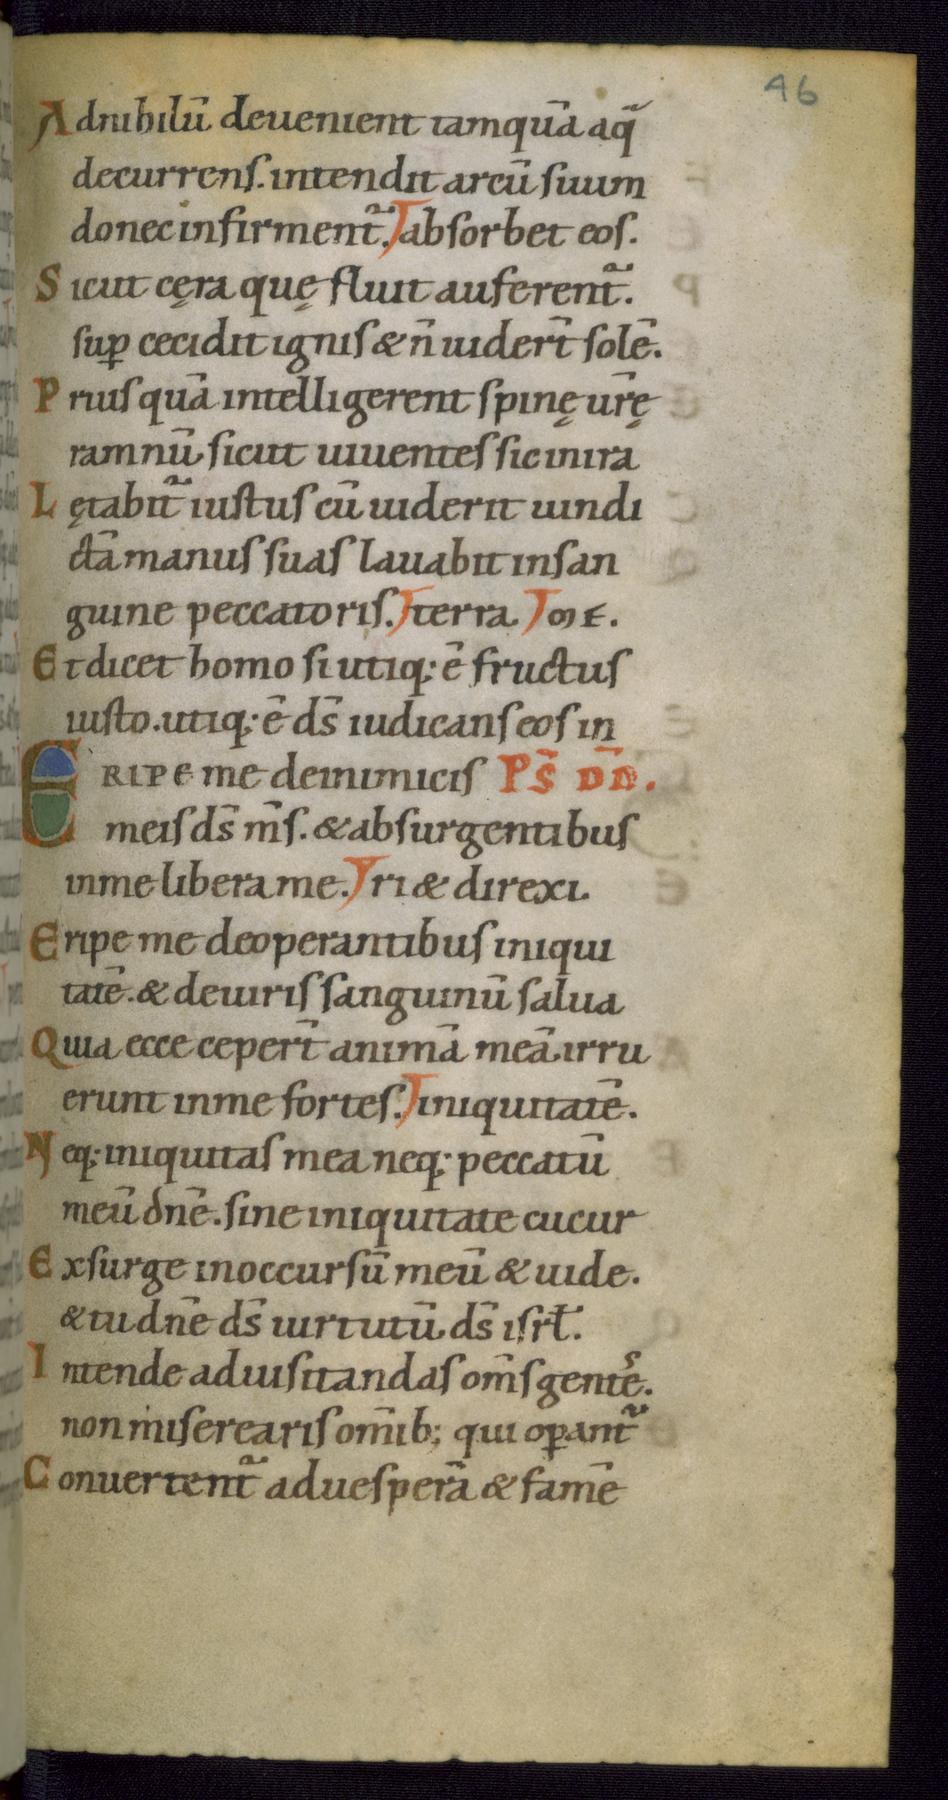 46
Adnihilū deuenient tamquā aq̄
decurrens. intendit arcū suum
donec infirment᷑. absorbet eos.
Sicut cęra quę fluit auferent᷑.
suꝑ cecidit ignis & n̄ uider̄t solē.
Priusquā intelligerent spinę ur̄ę
ramnū sicut uiuentes sic inira
Lętabit᷑ iustus cū uiderit uindi
ctā manus suas lauabit insan
guine peccatoris. terra. om̄t.
Et dicet homo si utiq; ē fructus
iusto. utiq; ē ds̄ iudicans eos in
ERIPE me deinimicis PS̄ DD̄.
meis ds̄ m̄s. & absurgentibus
inme libera me. ri & direxi.
Eripe me deoperantibus iniqui
tatē. & deuiris sanguinū salua
Quia ecce ceper̄t animā meā. irru
erunt inme fortes. iniquitatē.
Neq; iniquitas mea neq; peccatū
meū dn̄e. sine iniquitate cucur
Exsurge inoccursū meū & uide.
& tu dn̄e ds̄ uirtutū ds̄ isrł.
Intende aduisitandas om̄s gentes.
non miserearis om̄ib; qui oꝑant᷑
Conuertent᷑ aduesperā & famē